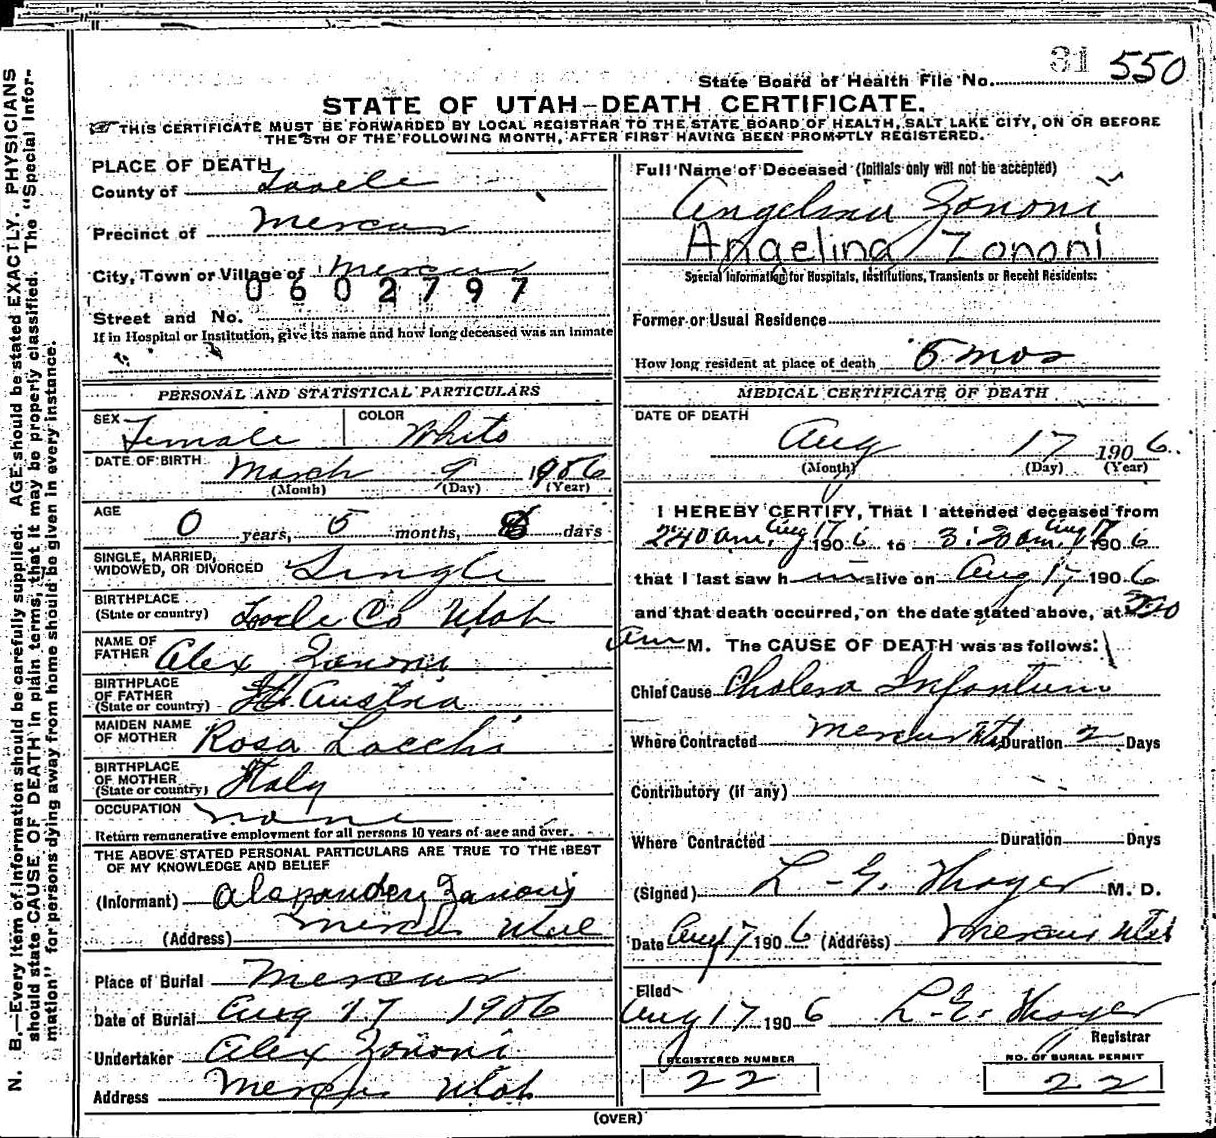 State Board of Health File No. 31 550
STATE OF UTAH—DEATH CERTIFICATE.
THIS CERTIFICATE MUST BE FORWARDED BY LOCAL REGISTRAR TO THE STATE BOARD OF HEALTH, SALT LAKE CITY, ON OR BEFORE
THE 5TH OF THE FOLLOWING MONTH, AFTER FIRST HAVING BEEN PROMPTLY REGISTERED.
N. B.—Every item of information should be carefully supplied. AGE should be stated EXACTLY. PHYSICIANS
should state CAUSE OF DEATH in plain terms, that it may be properly classified. The "Special Infor-
mation" for persons dying away from home should be given in every instance.
PLACE OF DEATH
County of Tooele
Precinct of Mercur
City, Town or Village of Mercur
0602797
Street and No.
If in Hospital or Institution, give its name and how long deceased was an inmate
Full Name of Deceased (Initials only will not be accepted)
Angelina Zononi
Angelina Zononi
Special Information for Hospitals, Institutions, Transients or Recent Residents:
Former or Usual Residence
How long resident at place of death 5 mos
PERSONAL AND STATISTICAL PARTICULARS
SEX Female COLOR White
DATE OF BIRTH March 9 1906
(Month) (Day) (Year)
AGE 0 years, 5 months, 8 days
SINGLE, MARRIED,
WIDOWED, OR DIVORCED Single
BIRTHPLACE
(State or country) Tooele Co Utah
NAME OF
FATHER Alex Zononi
BIRTHPLACE
OF FATHER
(State or country) Austria
MAIDEN NAME
OF MOTHER Rosa Lacchi
BIRTHPLACE
OF MOTHER
(State or country) Italy
OCCUPATION none
Return remunerative employment for all persons 10 years of age and over.
THE ABOVE STATED PERSONAL PARTICULARS ARE TRUE TO THE BEST
OF MY KNOWLEDGE AND BELIEF
(Informant) Alexander Zanoni
(Address) Mercur Utah
Place of Burial Mercur
Date of Burial Aug 17 1906
Undertaker Alex Zononi
Address Mercur Utah
MEDICAL CERTIFICATE OF DEATH
DATE OF DEATH
Aug 17 1906
(Month) (Day) (Year)
I HEREBY CERTIFY, That I attended deceased from
2:40 am. Aug 17 1906 to 3:20 am. Aug 17 1906
that I last saw h alive on Aug 17 1906
and that death occurred, on the date stated above, at 320
am M. The CAUSE OF DEATH was as follows:
Chief Cause Cholera Infantum
Where Contracted Mercur Utah Duration 2 Days
Contributory (if any)
Where Contracted Duration Days
(Signed) L. E. Thayer M. D.
Date Aug 17 1906 (Address) Mercur Utah
Filed
Aug 17 1906 L. E. Thayer
Registrar
REGISTERED NUMBER
22
NO. OF BURIAL PERMIT
22
(OVER)